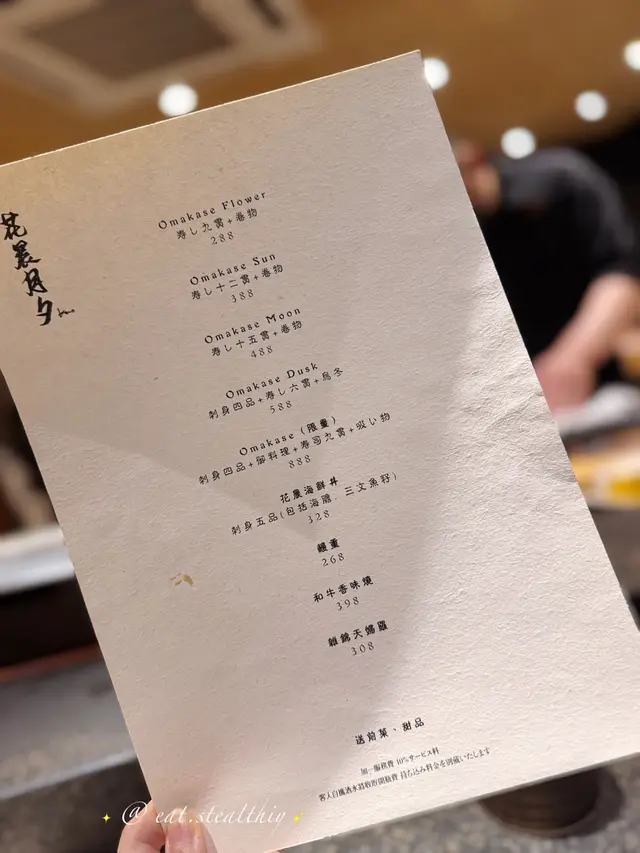 花晨月夕
Omakase Flower
寿し九貫+巻物
288
Omakase Sun
寿し十二貫+巻物
388
Omakase Moon
寿し十五貫+巻物
488
Omakase Dusk
刺身四品+寿し六貫+烏冬
588
Omakase (限量)
刺身四品+御料理+寿司九貫+吸い物
888
花晨海鮮丼
刺身五品(包括海膽、三文魚籽)
328
鰻重
268
和牛香味燒
398
雜錦天婦羅
308
送前菜、甜品
加一服務費 10%サービス料
客人自攜酒水將收取開瓶費 持ち込み料金を頂戴いたします
@eat.stealthiy